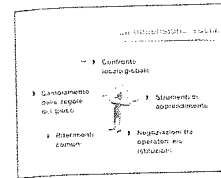 La dimensione sociale
Confronto
locale/globale
Cambiamento
delle regole
del gioco
Strumenti di
apprendimento
Riferimenti
comuni
Negoziazioni tra
operatori e/o
istituzioni